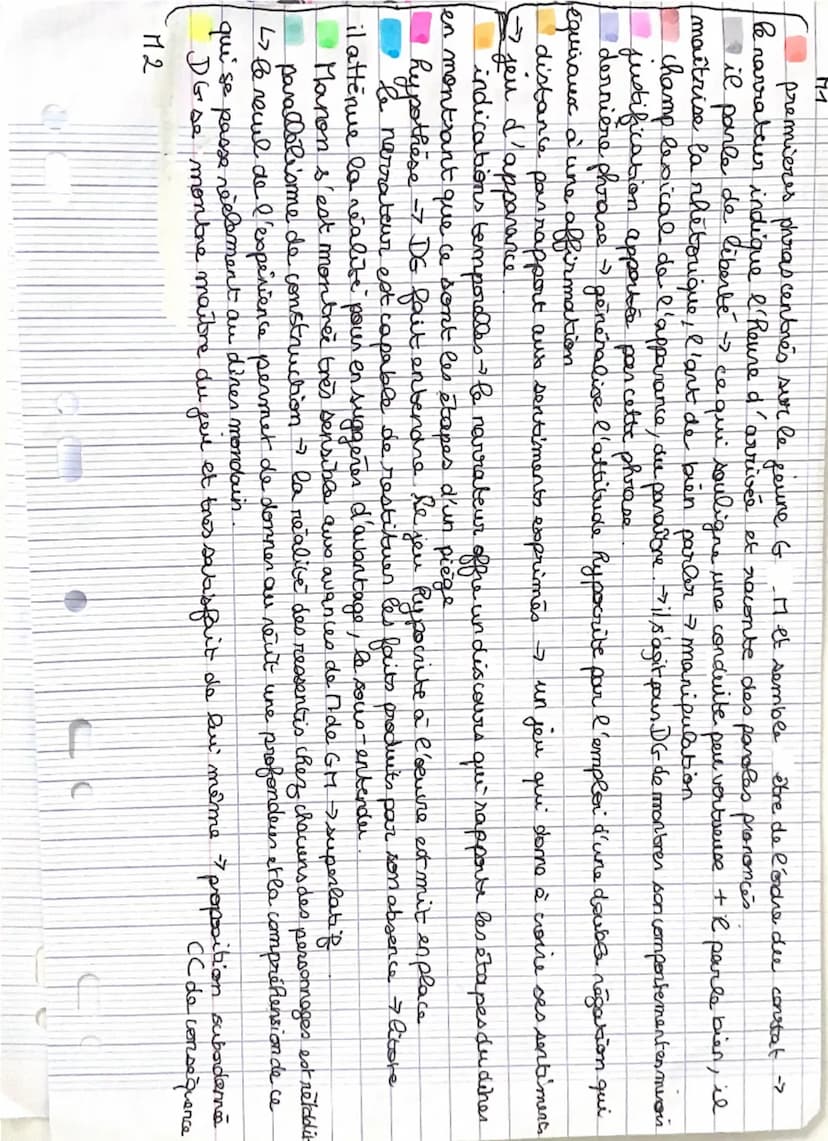 M1
premieres phrases centrés sur le jeune G M et semble être de l'ordre du constat →
le narrateur indique l'heure d'arrivée et raconte des paroles prononcés
il parle de liberté → ce qui souligne une conduite peu vertueuse + il parle bien, il
maîtrise la rhétorique, l'art de bien parler → manipulation
champ lexical de l'apparence, du paraître. → il s'agit pour DG de montrer son comportement en miroir
justification apportée par cette phrase.
dernière phrase → généralise l'attitude hypocrite par l'emploi d'une double négation qui
équivaux à une affirmation
distance par rapport aux sentiments exprimés → un jeu qui donne à croire ses sentiments
→ jeu d'apparance
indications temporelles → le narrateur offre un discours qui rapporte les étapes du diner
en montrant que ce sont les étapes d'un piège
hypothèse → DG fait entendre le jeu hypocrite à l'œuvre est mit en place
le narrateur est capable de restituer les faits produits par son absence → litote
il atténue la réalité pour en suggérer d'avantage, la sous-entendre.
Manon s'est montrée très sensible aux avances de M de GM → superlatif
parallélisme de construction → la réalité des ressentis chez chacuns des personnages est rétabli
↳ le seul de l'expérience permet de donner au récit une profondeur et la compréhension de ce
qui se passe réelement au diner mondain.
DG se montre maître du jeu et très satisfait de lui même → proposition subordonné
CC de conséquence
M2